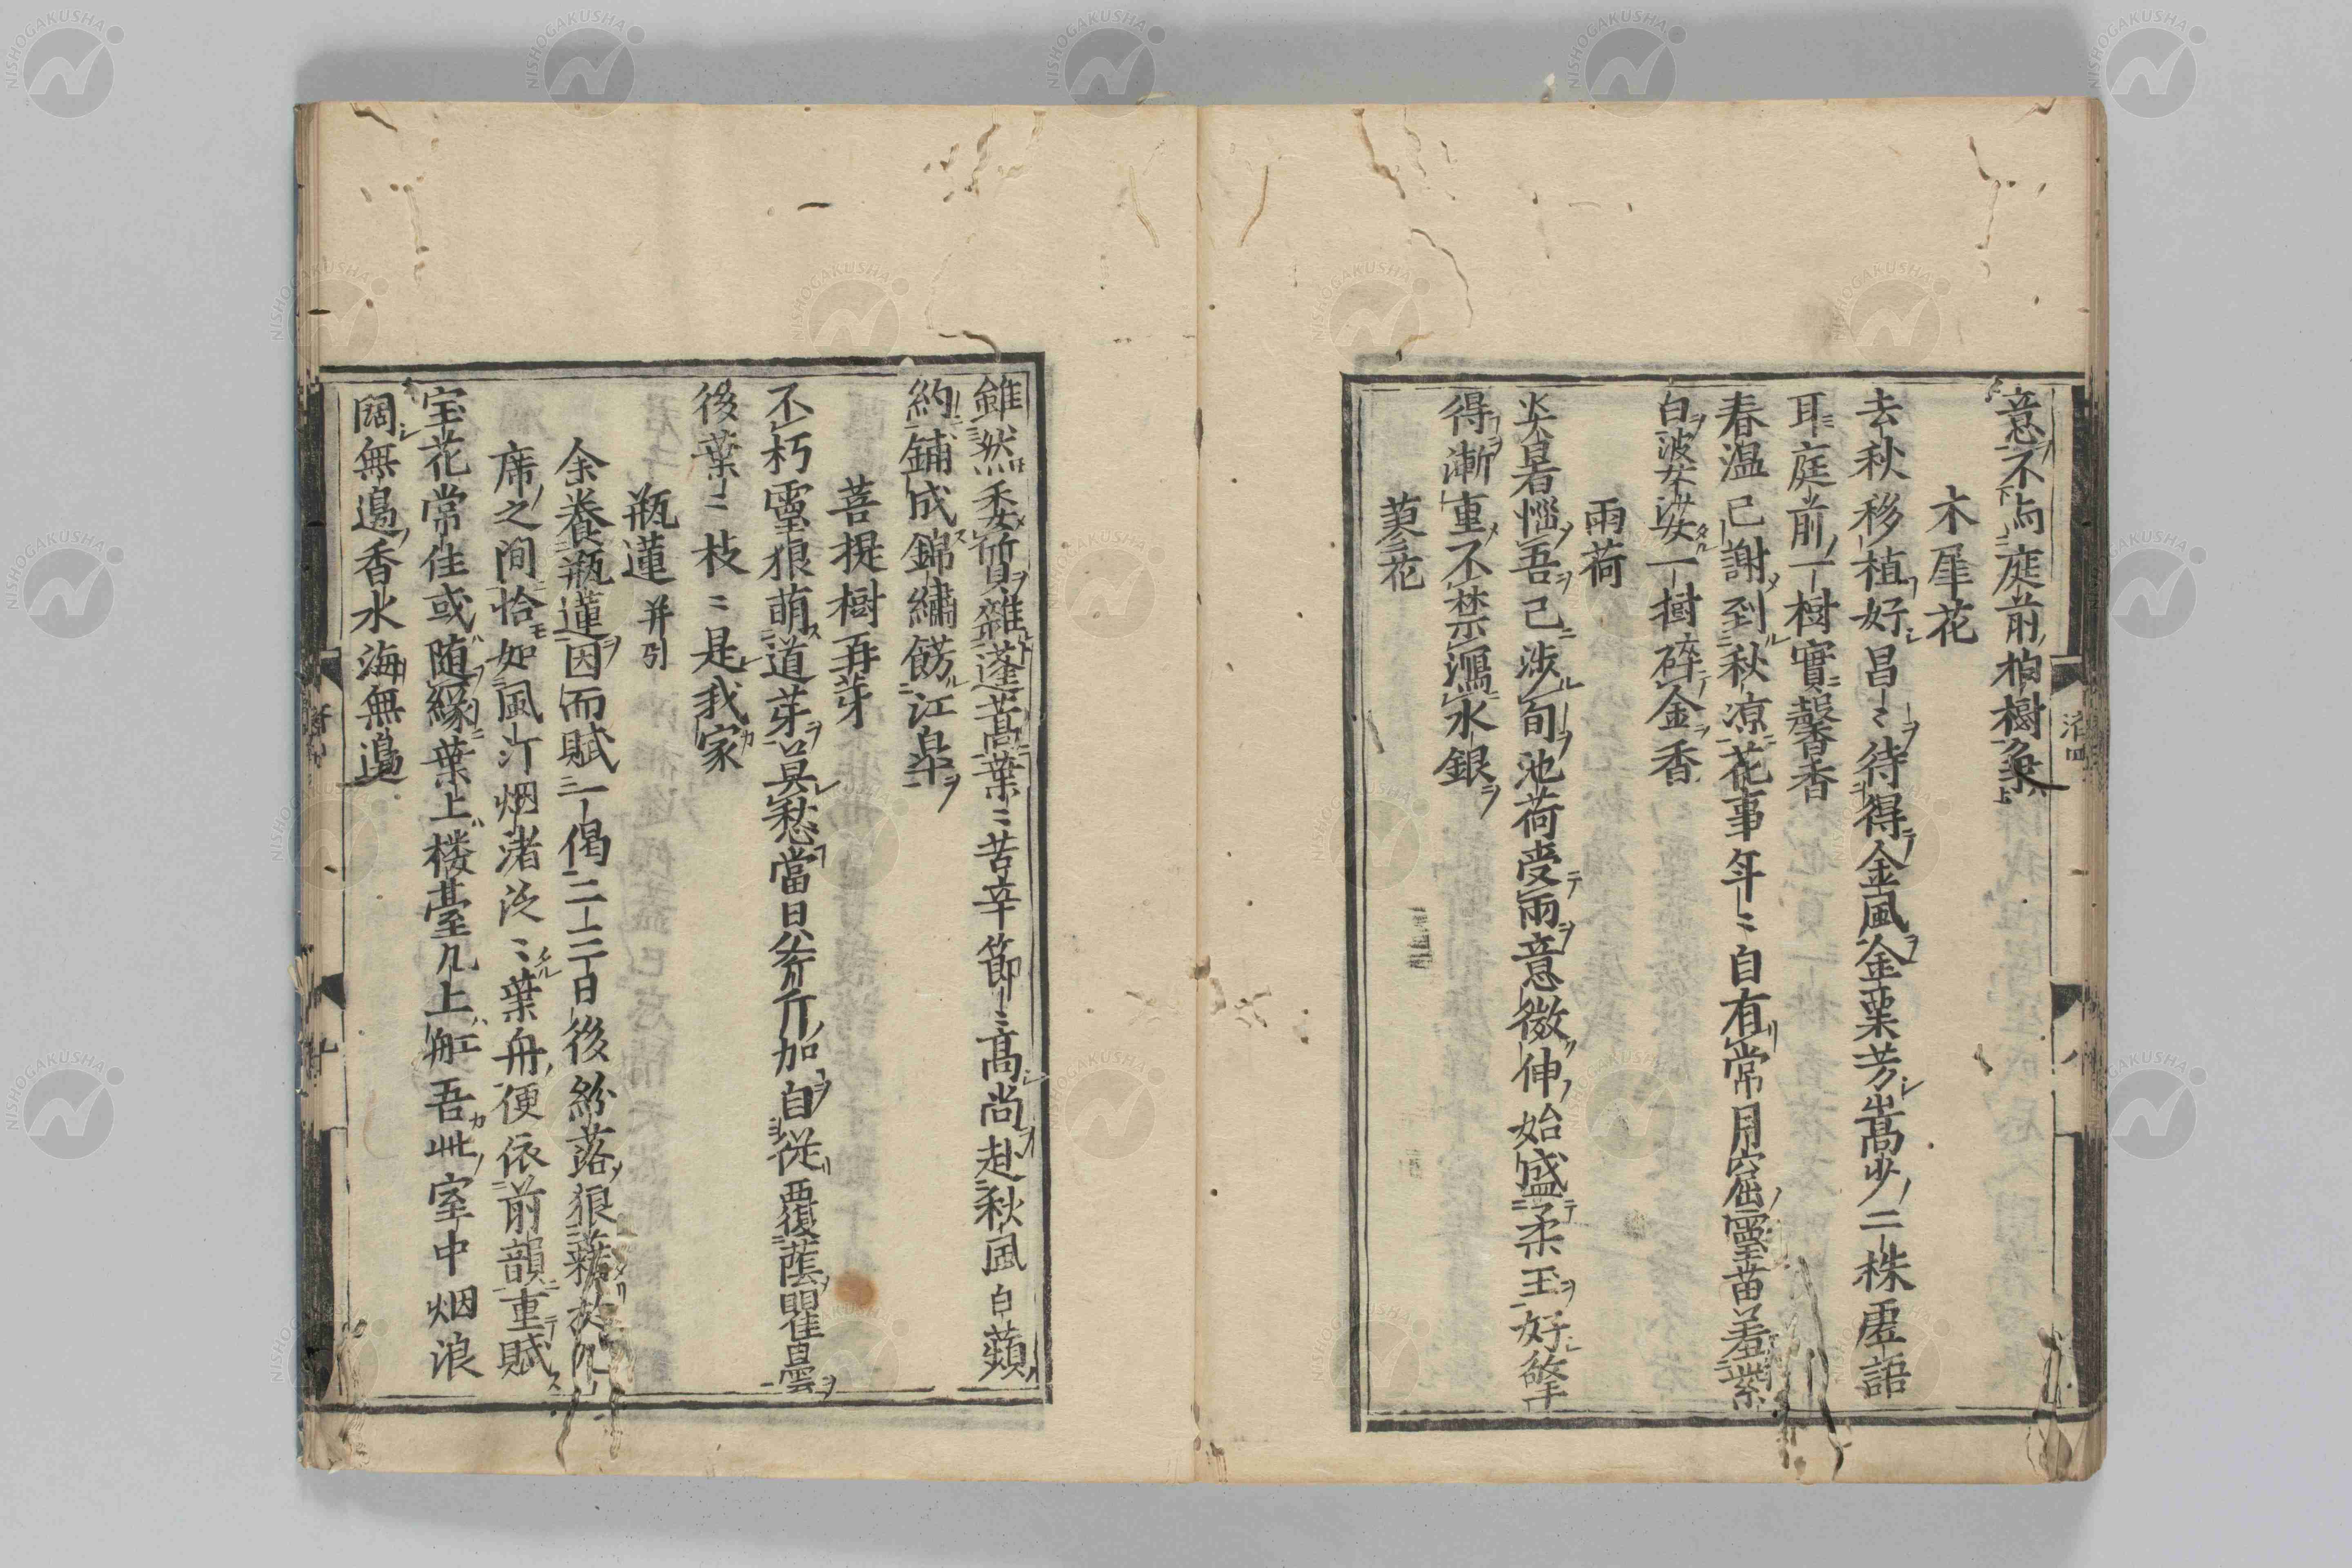 意不向庭前柏樹象
木犀花
去秋移植好昌〻待得金風金粟芳嵩少二株虛語
耳庭前一樹實馨香
春温已謝到秋凉花事年〻自有常月窟靈苗羞紫
白婆娑一樹碎金香
雨荷
炎暑惱吾已涉旬池荷受雨意微伸始盛柔玉好擎
得漸重不禁瀉水銀
蓼花
雖然委質雜蓬蒿葉〻苦辛節〻高尚赴秋風白蘋
約鋪成錦繡餝江皐
菩提樹再芽
不朽靈根萌道芽莫愁當日斧斤加自従覆蔭瞿曇
後葉〻枝〻是我家
瓶蓮 并引
余養瓶蓮因而賦一偈二三日後紛落狼藉於几
席之間恰如風汀烟渚泛〻葉舟便依前韻重賦
宝花常住或随緣葉上楼臺几上舡吾此室中烟浪
闊無邊香水海無邊